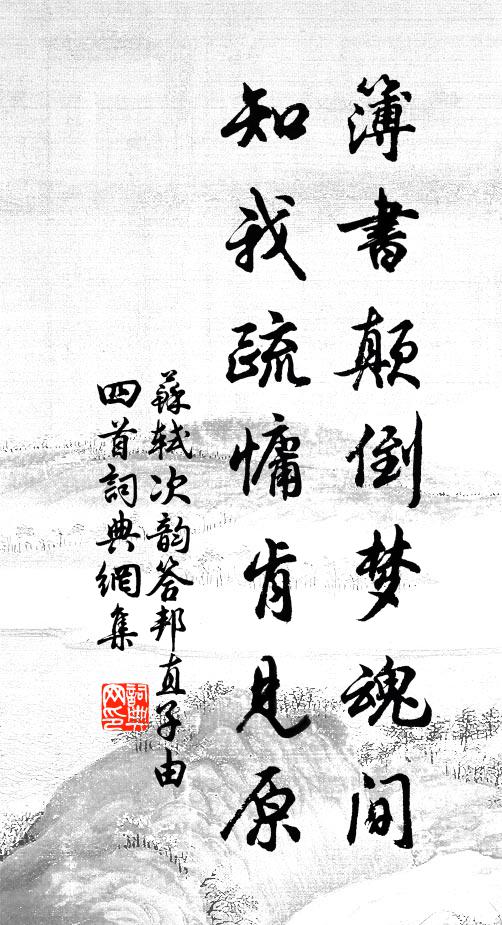 簿書顛倒梦魂間
知我疏慵肯見原
蘇軾次韵答邦直子由
四首詞典網集
詞典
网印